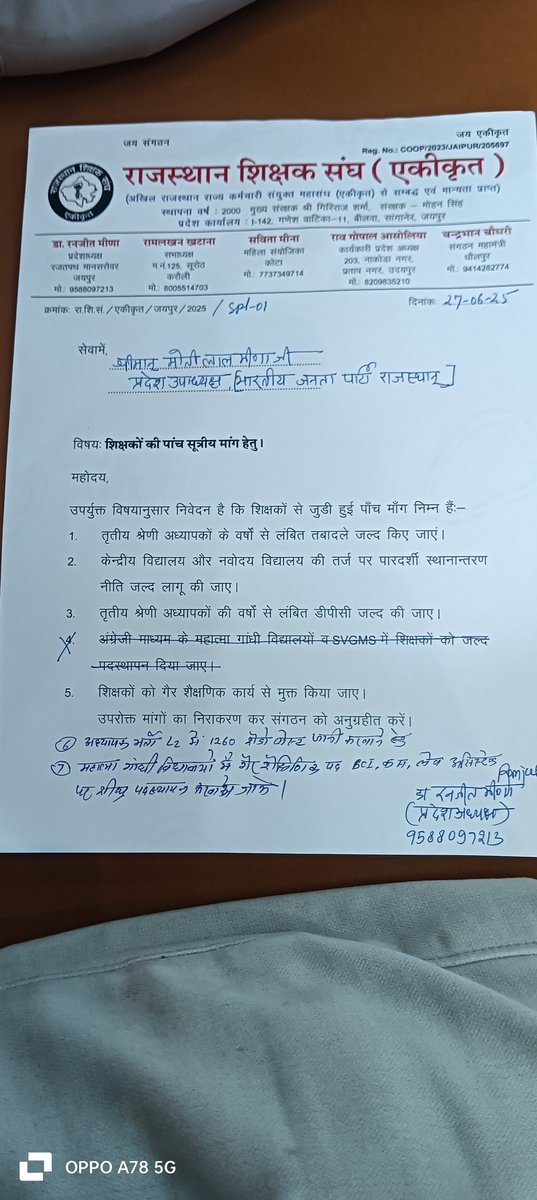 जय संगठन
जय एकीकृत
Reg. No.: COOP/2023/JAIPUR/205697
राजस्थान शिक्षक संघ
एकीकृत
राजस्थान शिक्षक संघ ( एकीकृत )
(अखिल राजस्थान राज्य कर्मचारी संयुक्त महासंघ (एकीकृत) से सम्बद्ध एवं मान्यता प्राप्त)
स्थापना वर्ष : 2000 मुख्य संरक्षक श्री गिरिराज शर्मा, संरक्षक – मोहन सिंह
प्रदेश कार्यालय : I-142, गणेश वाटिका–11, बीलवा, सांगानेर, जयपुर
डा. रनजीत मीणा
प्रदेशाध्यक्ष
रजतपथ मानसरोवर
जयपुर
मो.: 9588097213
रामलखन खटाना
सभाध्यक्ष
म.नं.125, सूरोठ
करौली
मो.: 8005514703
सविता मीना
महिला संयोजिका
कोटा
मो.: 7737349714
राव गोपाल आसोलिया
कार्यकारी प्रदेश अध्यक्ष
203, नाकोडा नगर,
प्रताप नगर, उदयपुर
मो.: 8209835210
चन्द्रभान चौधरी
संगठन महामंत्री
धौलपुर
मो.: 9414282774
क्रमांक: रा.शि.सं./एकीकृत/जयपुर/2025 / Spl-01
दिनांक: 27-06-25
सेवामें,
श्रीमान् मोती लाल मीणा जी
प्रदेश उपाध्यक्ष [भारतीय जनता पार्टी राजस्थान]
विषयः शिक्षकों की पांच सूत्रीय मांग हेतु।
महोदय,
उपर्युक्त विषयानुसार निवेदन है कि शिक्षकों से जुडी हुई पाँच माँग निम्न हैं:–
1. तृतीय श्रेणी अध्यापकों के वर्षो से लंबित तबादले जल्द किए जाएं।
2. केन्द्रीय विद्यालय और नवोदय विद्यालय की तर्ज पर पारदर्शी स्थानान्तरण
नीति जल्द लागू की जाए।
3. तृतीय श्रेणी अध्यापकों की वर्षो से लंबित डीपीसी जल्द की जाए।
4. अंग्रेजी माध्यम के महात्मा गांधी विद्यालयों व SVGMS में शिक्षकों को जल्द
पदस्थापन दिया जाए।
5. शिक्षकों को गैर शैक्षणिक कार्य से मुक्त किया जाए।
उपरोक्त मांगों का निराकरण कर संगठन को अनुग्रहीत करें।
6 अध्यापक भर्ती L2 में 1260
7 महात्मा गांधी विद्यालयों में गैर पद BCI, लेब
पर शीघ्र पदस्थापन
डा रनजीत मीणा
(प्रदेश अध्यक्ष)
9588097213
OPPO A78 5G